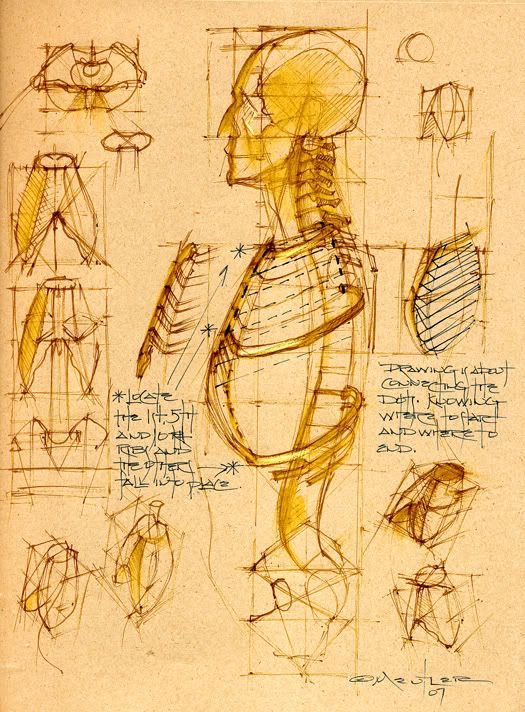 * LOCATE
THE 1ST, 5TH
AND 10TH
RIBS AND
THE OTHERS
FALL INTO PLACE.
DRAWING IS ABOUT
CONNECTING THE
DOTS. KNOWING
WHERE TO START
AND WHERE TO
END.
07